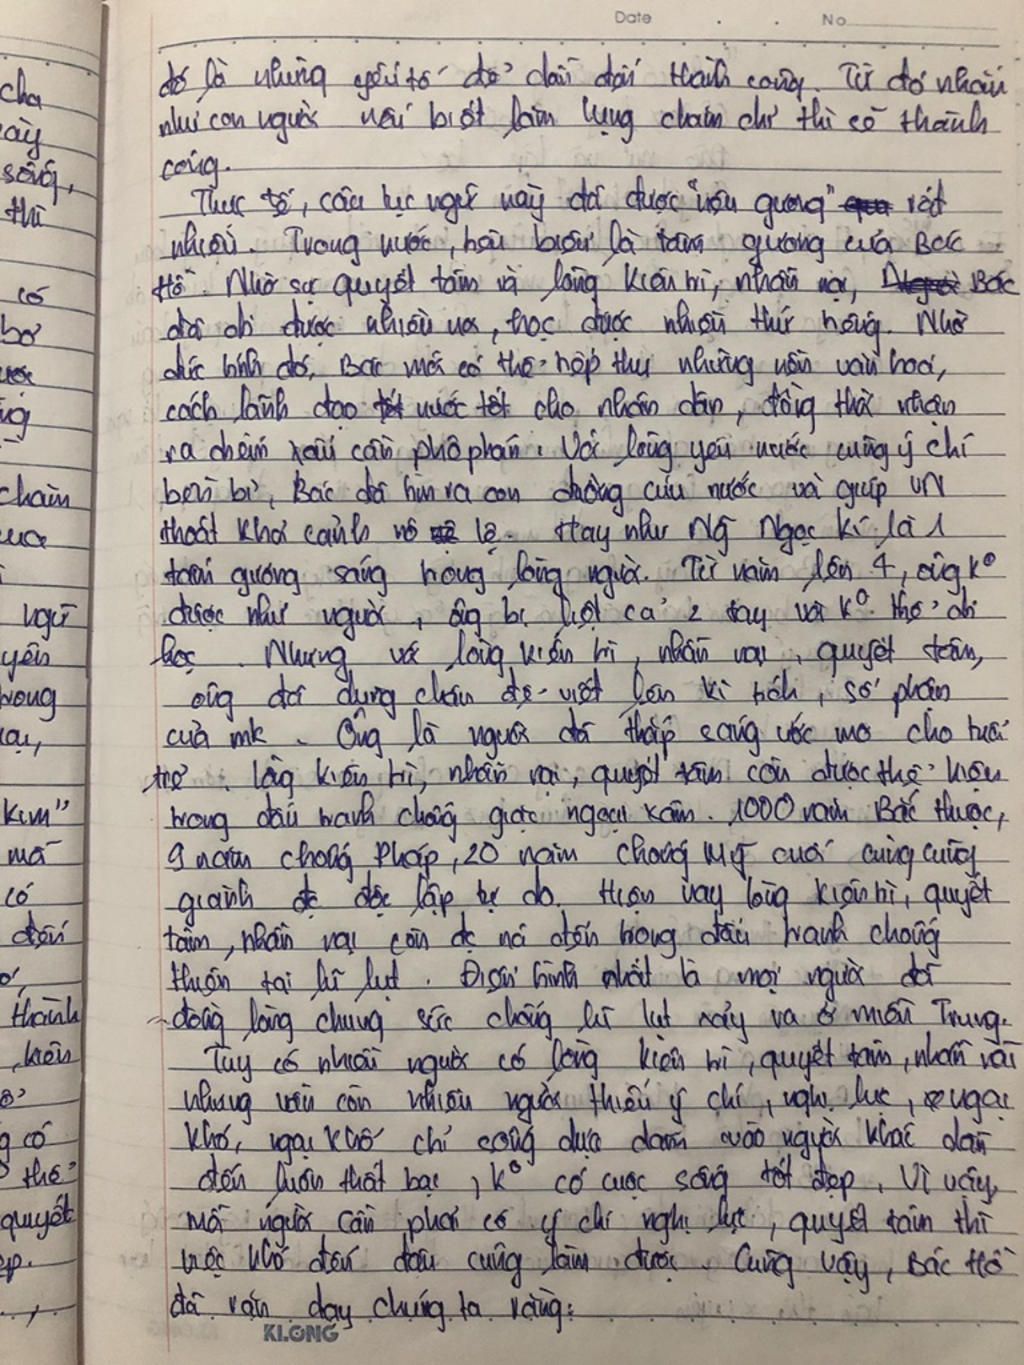 Date . . No
cha
ày
sống,
thì
có
bơ
ng
chăm
ngữ
yên
trong
lại,
kim"
mà
có
đến
thành
, kiên
g có
thể
quyết
ẹp.
đó là những yếu tố để dẫn đến thành công. Từ đó nhắn
như con người nếu biết làm lụng chăm chỉ thì có thành
công.
Thực tế, câu tục ngữ này đã được "nêu gương" rất
nhiều. Trong nước, tiêu biểu là tấm gương của Bác
Hồ. Nhờ sự quyết tâm và lòng kiên trì, nhẫn nại, Bác
đã đi được nhiều nơi, học được nhiều thứ tiếng. Nhờ
đức tính đó, Bác mới có thể tiếp thu những nền văn hoá,
cách lãnh đạo nước tốt cho nhân dân, đồng thời nhận
ra điểm xấu cần phê phán. Với lòng yêu nước cùng ý chí
bền bỉ, Bác đã tìm ra con đường cứu nước và giúp VN
thoát khỏi cảnh nô lệ. Hay như Ng Ngọc Kí là 1
tấm gương sáng trong lòng người. Từ năm lên 4, ông k°
được như người, ông bị liệt cả 2 tay và k° thể đi
học. Nhưng với lòng kiên trì, nhẫn nại, quyết tâm,
ông đã dụng chân để viết lên kì tích, số phận
của mk. Ông là người đã thắp sáng ước mơ cho tuổi
trẻ. Lòng kiên trì, nhẫn nại, quyết tâm còn được thể hiện
trong đấu tranh chống giặc ngoại xâm. 1000 năm Bắc thuộc,
9 năm chống Pháp, 20 năm chống Mỹ cuối cùng cũng
giành đc độc lập tự do. Hiện nay lòng kiên trì, quyết
tâm, nhẫn nại còn đc nói đến trong đấu tranh chống
thiên tai lũ lụt. Điển hình nhất là mọi người đã
đồng lòng chung sức chống lũ lụt xảy ra ở miền Trung.
Tuy có nhiều người có lòng kiên trì, quyết tâm, nhẫn nại
nhưng vẫn còn nhiều người thiếu ý chí, nghị lực, ngại
khó, ngại khổ chỉ sống dựa dẫm vào người khác dẫn
đến luôn thất bại, k° có cuộc sống tốt đẹp. Vì vậy,
mỗi người cần phải có ý chí nghị lực, quyết tâm thì
việc khó đến đâu cũng làm được. Cũng vậy, Bác Hồ
đã răn dạy chúng ta rằng:
KLONG